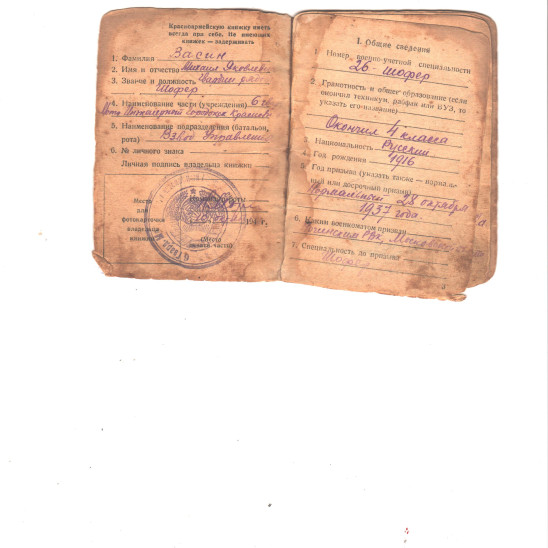 Красноармейскую книжку иметь
всегда при себе. Не имеющих
книжек — задерживать
1. Фамилия Засин
2. Имя и отчество Михаил Яковлев
3. Звание и должность
Шофер
4. Наименование части (учреждения) 6
5. Наименование подразделения (батальон,
рота) Взвод Управлени
6. № личного знака
Личная подпись владельца книжки
Место
для
фотокарточки
владельца
книжки
(Место
печати части)
I. Общие сведения
1. Номер военно-учетной специальности
26 - шофер
2. Грамотность и общее образование (если
окончил техникум, рабфак или ВУЗ, то
указать его название)
Окончил 4 класса
3. Национальность Русский
4. Год рождения 1916
5. Год призыва (указать также — нормаль-
ный или досрочный призыв)
Нормальный 28 октября
1937 года.
6. Каким военкоматом призван
РВК
7. Специальность до призыва
3